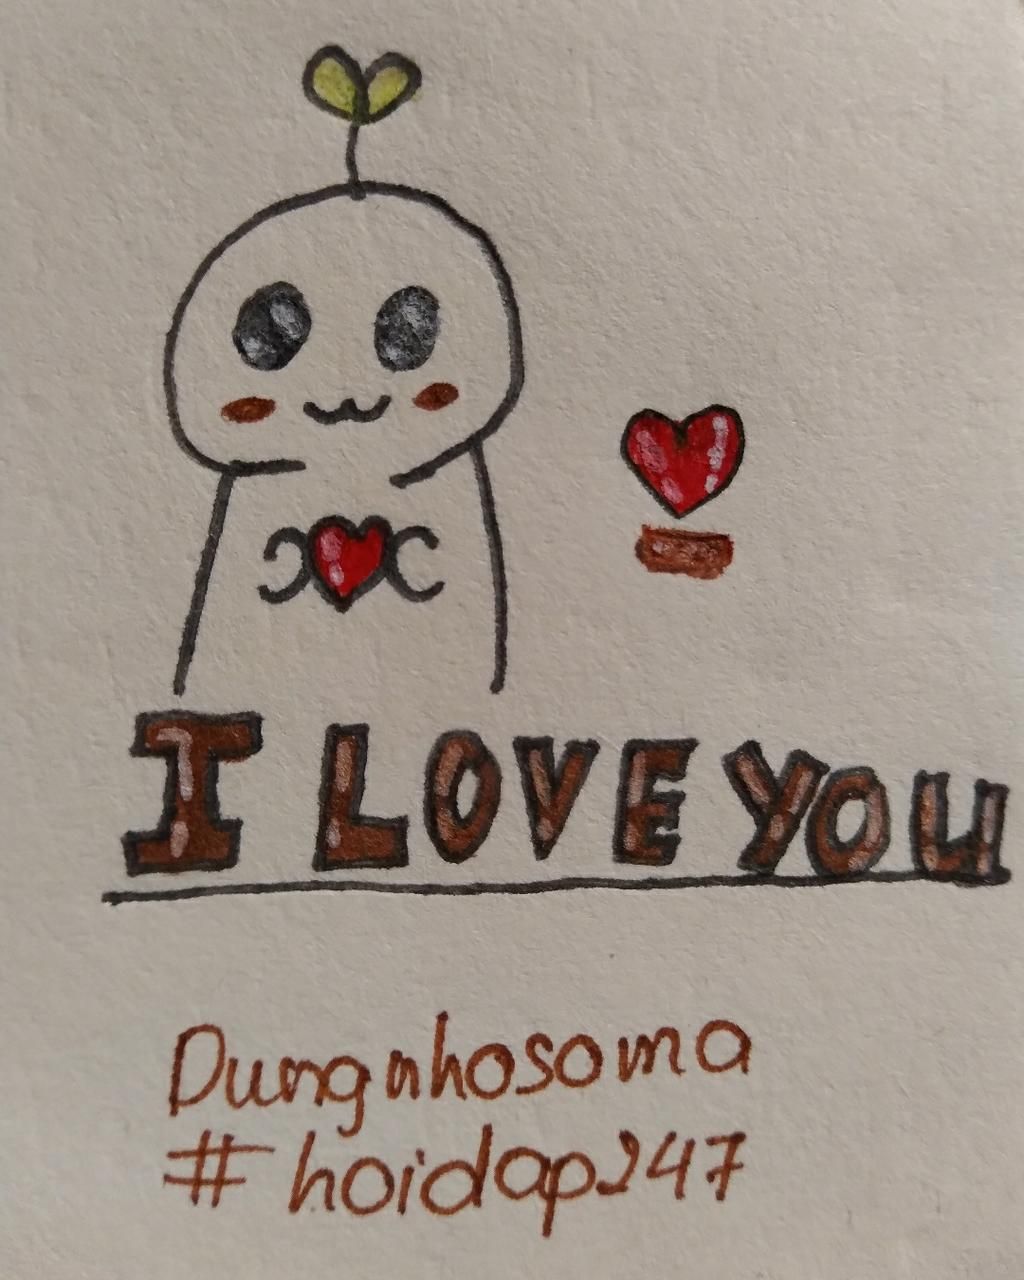 I LOVE YOU
Dungnhosoma
#hoidap247